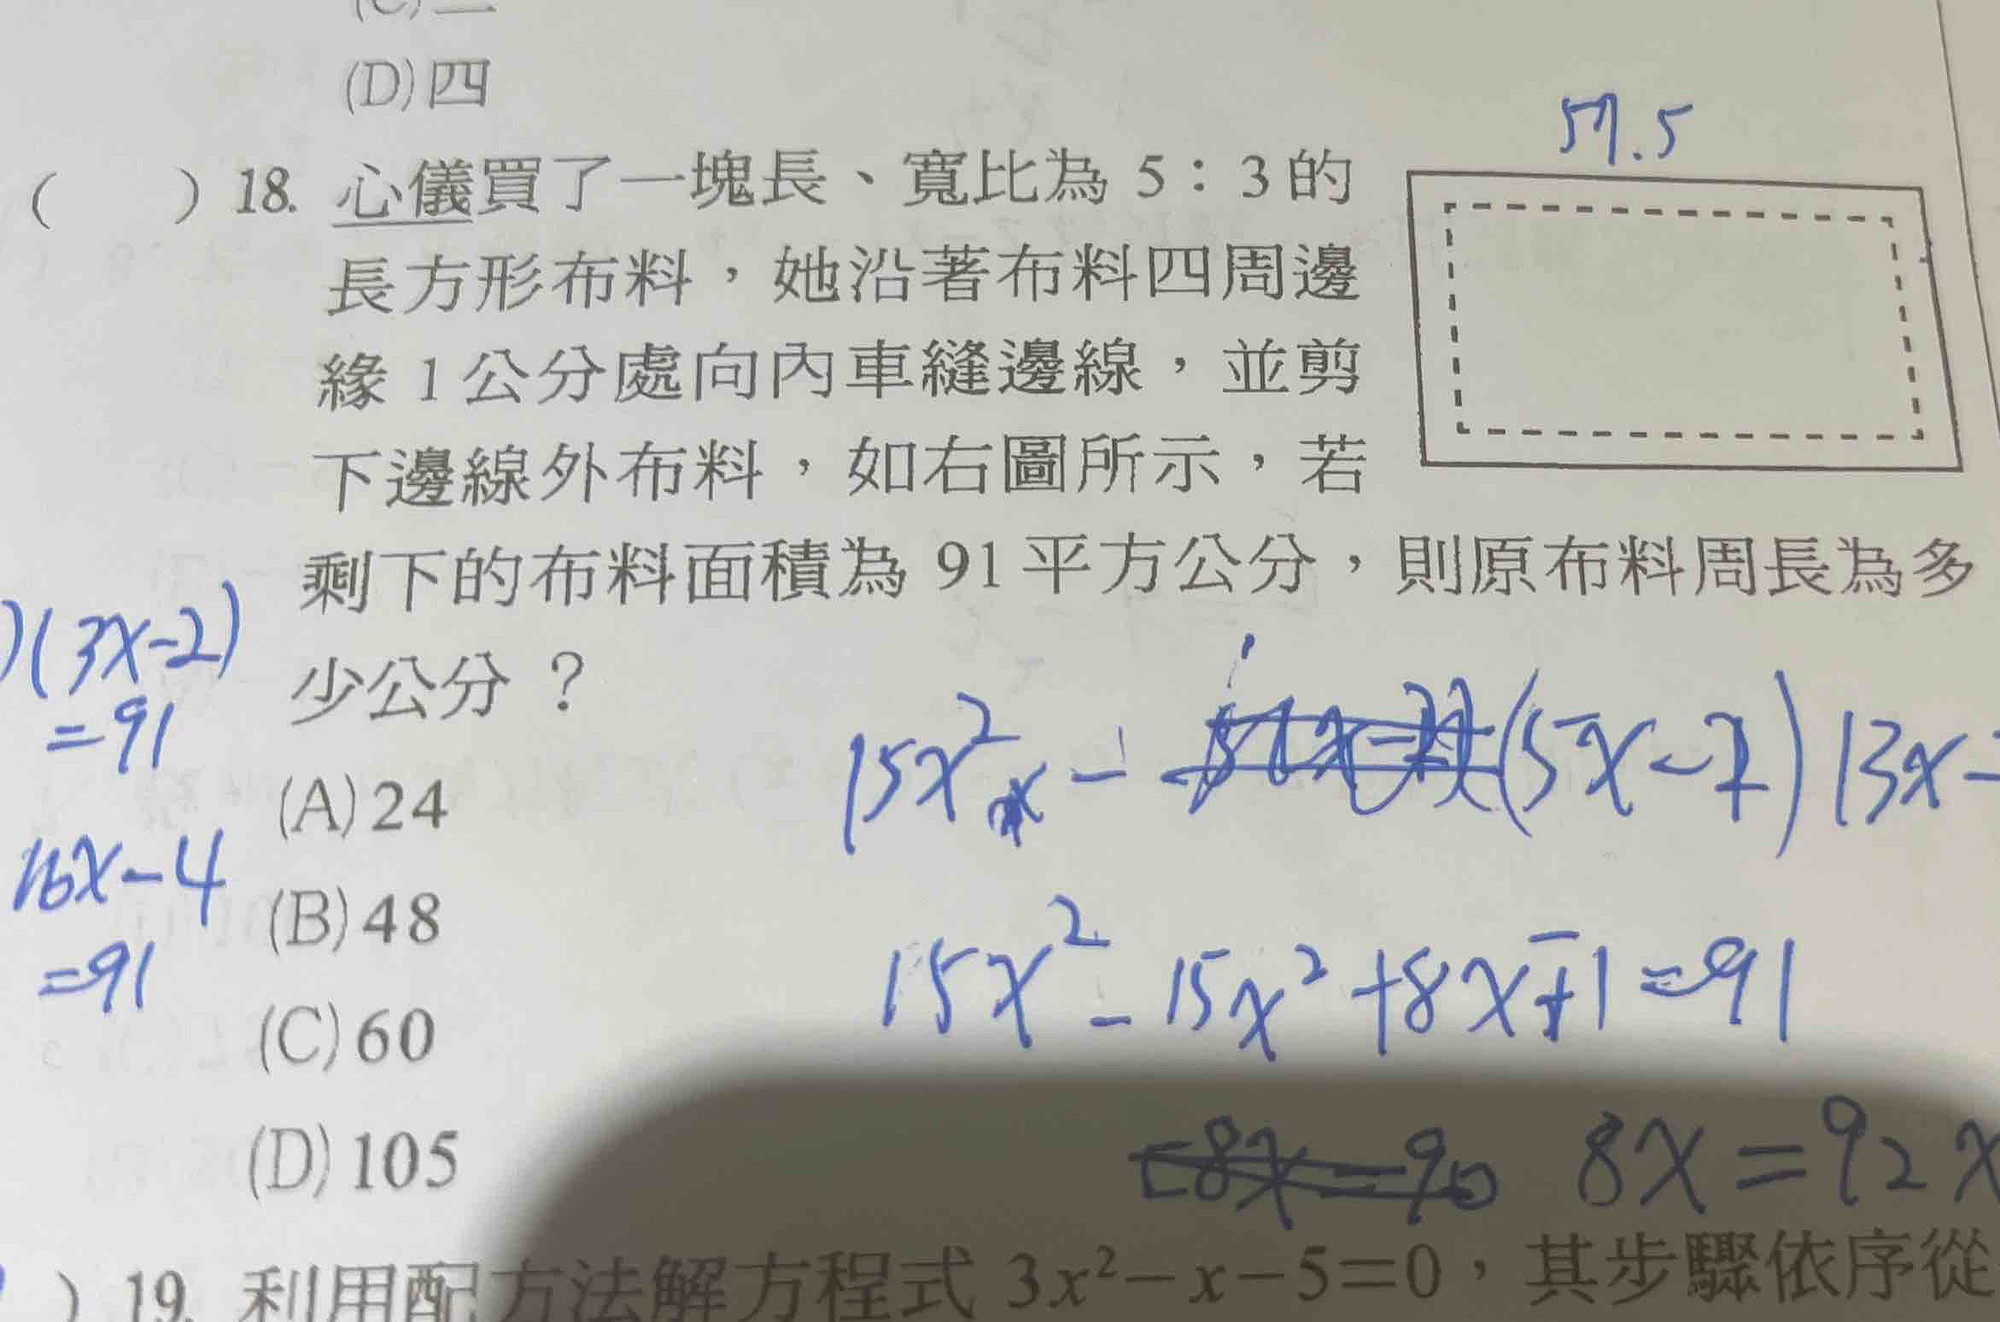 (D)四
57.5
( ) 18. 心儀買了一塊長、寬比為 5:3的
長方形布料，她沿著布料四周邊
緣 1公分處向內車縫邊線，並剪
下邊線外布料，如右圖所示，若
剩下的布料面積為 91平方公分，則原布料周長為多
少公分？
)(3x-2)
=91
(A)24
16x-4
=91
(B)48
(C)60
(D)105
15x²
(5x-2)(3x-
15x²-15x²+8x+1=91
8x=92 x
) 19. 利用配方法解方程式 3x²-x-5=0，其步驟依序從